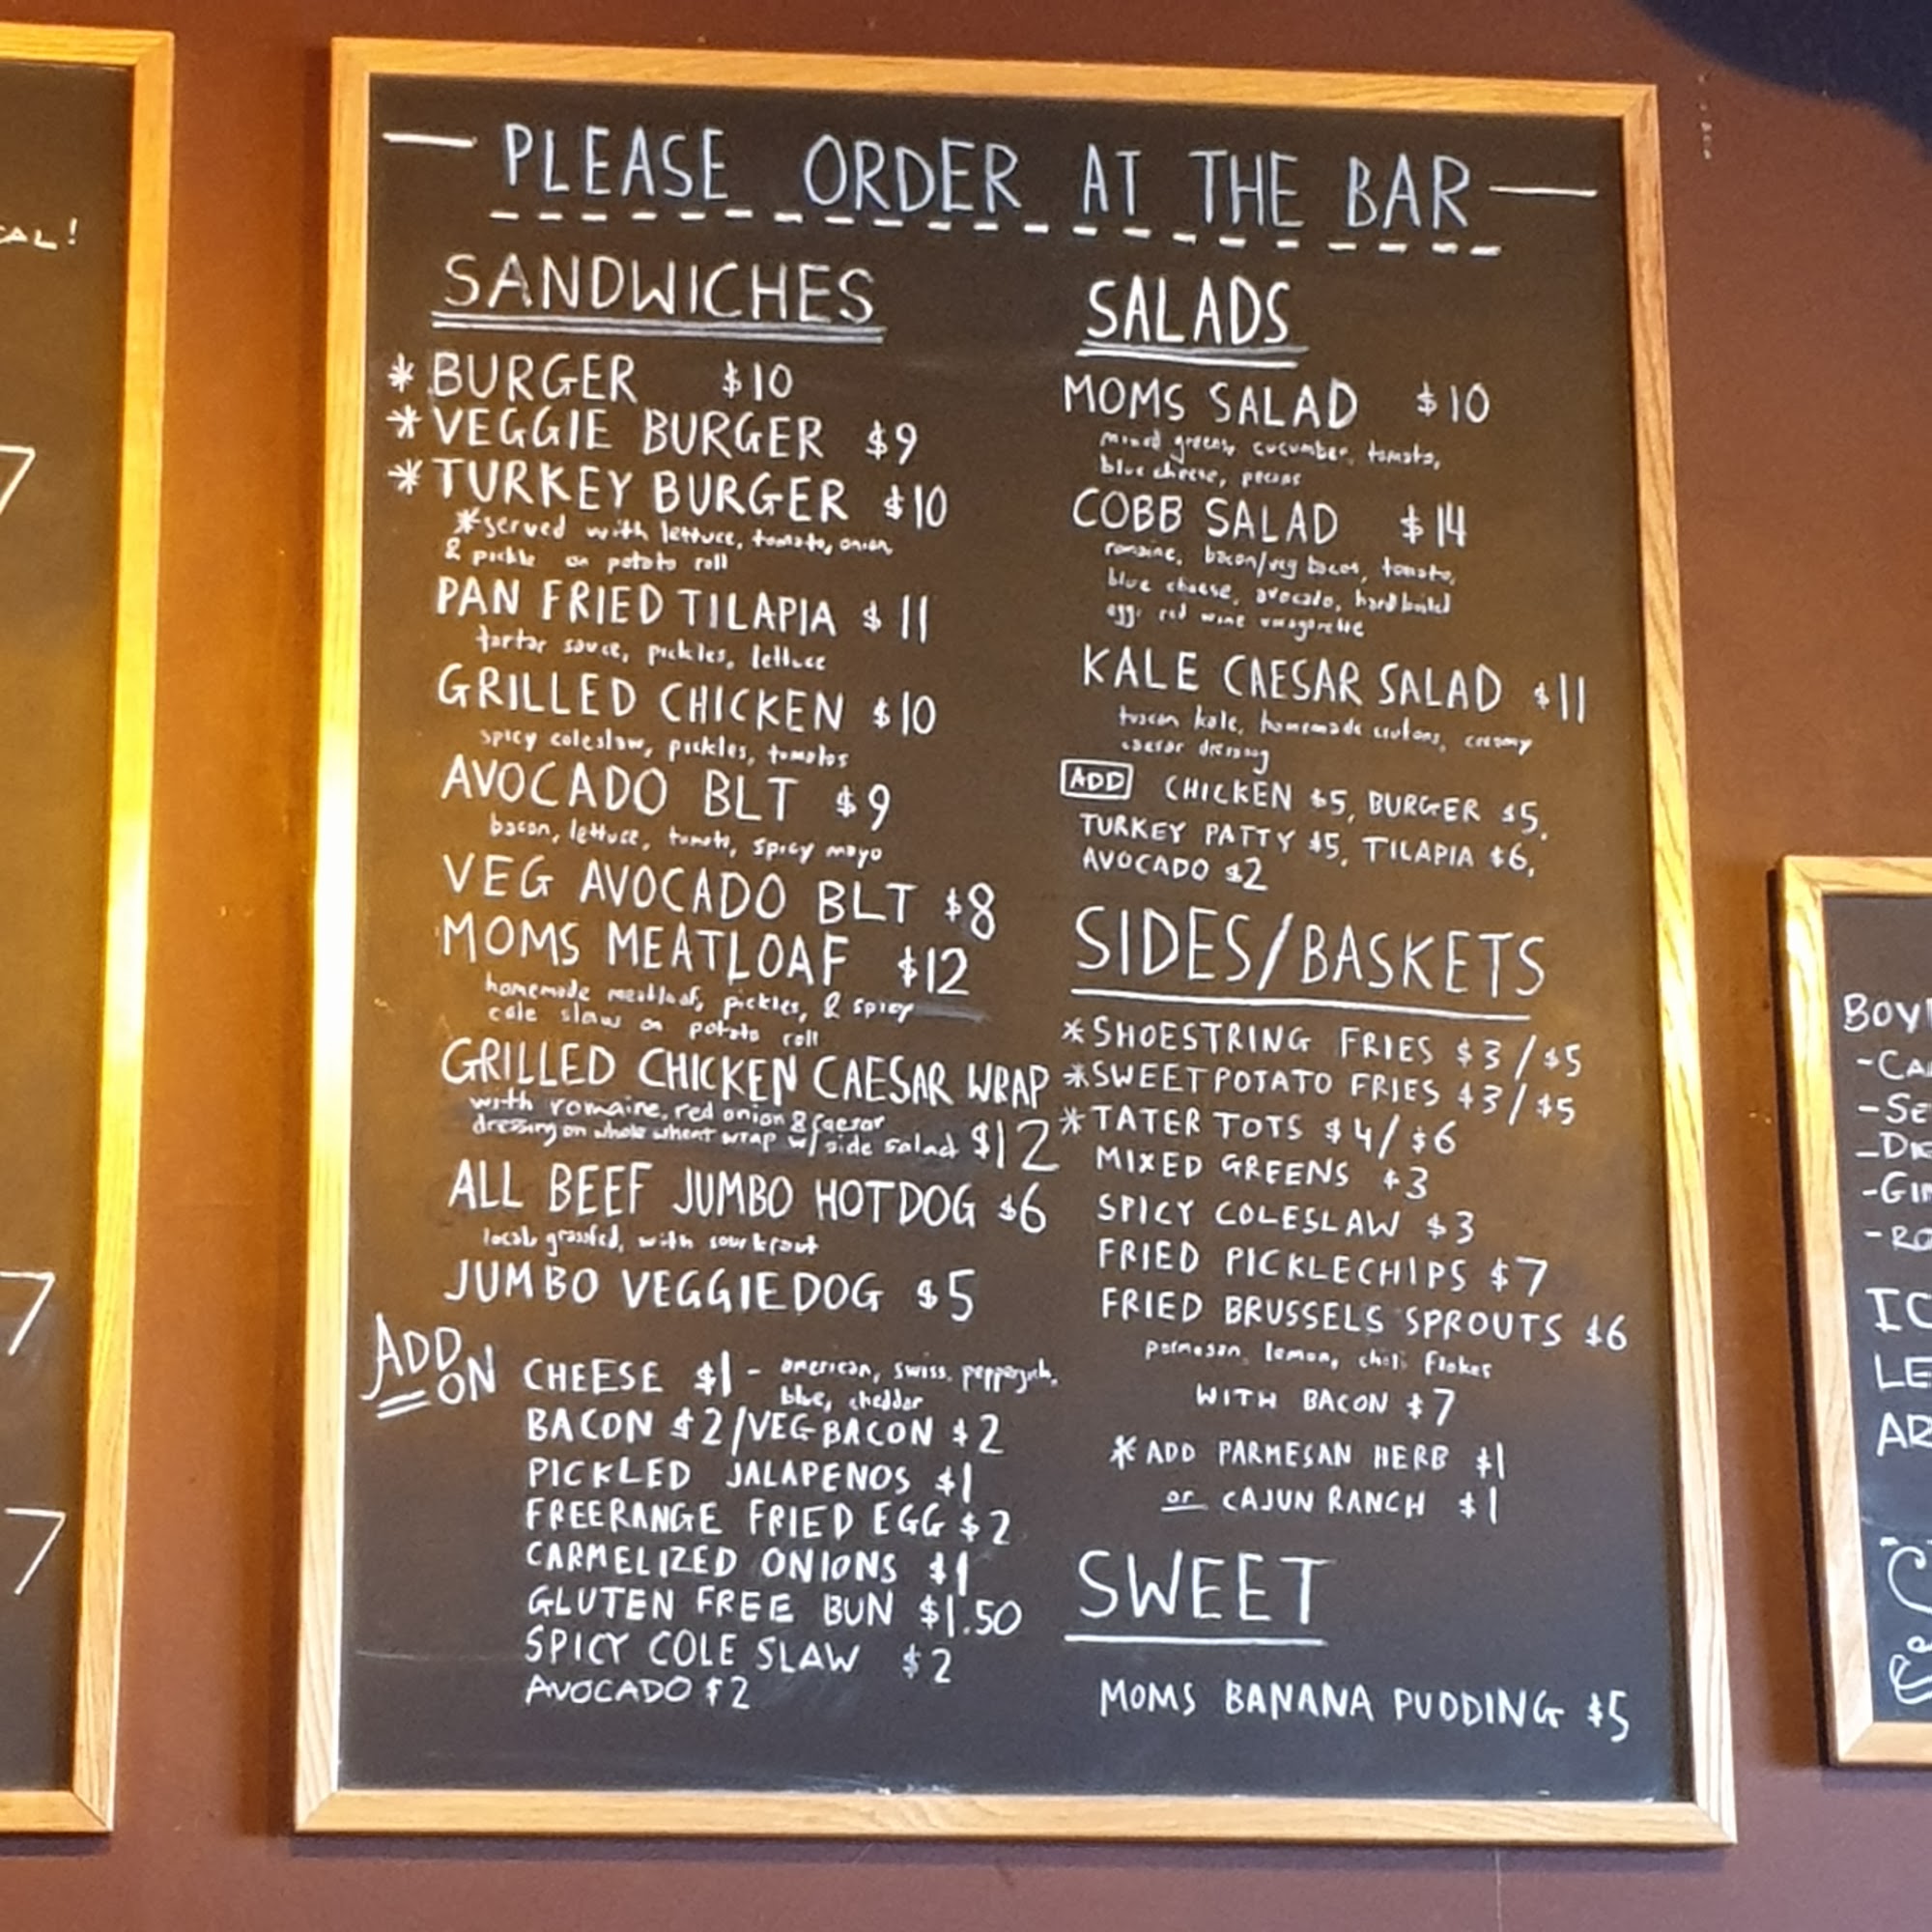 CAL!
7
7
7
PLEASE ORDER AT THE BAR
SANDWICHES
* BURGER $10
* VEGGIE BURGER $9
* TURKEY BURGER $10
*served with lettuce, tomato, onion,
& pickle on potato roll
PAN FRIED TILAPIA $11
tartar sauce, pickles, lettuce
GRILLED CHICKEN $10
spicy coleslaw, pickles, tomatos
AVOCADO BLT $9
bacon, lettuce, tomato, spicy mayo
VEG AVOCADO BLT $8
MOMS MEATLOAF $12
homemade meatloaf, pickles, & spicy
cole slaw on potato roll
GRILLED CHICKEN CAESAR WRAP
with romaine, red onion & caesar
dressing on whole wheat wrap w/ side salad $12
ALL BEEF JUMBO HOTDOG $6
local, grassfed, with sourkraut
JUMBO VEGGIEDOG $5
ADD ON
CHEESE $1 - american, swiss, pepperjack,
blue, cheddar
BACON $2/VEG BACON $2
PICKLED JALAPENOS $1
FREERANGE FRIED EGG $2
CARMELIZED ONIONS $1
GLUTEN FREE BUN $1.50
SPICY COLE SLAW $2
AVOCADO $2
SALADS
MOMS SALAD $10
mixed greens, cucumber, tomato,
blue cheese, pecans
COBB SALAD $14
romaine, bacon/veg bacon, tomato,
blue cheese, avocado, hard boiled
egg, red wine vinagarette
KALE CAESAR SALAD $11
tuscan kale, homemade crutons, creamy
caesar dressing
ADD CHICKEN $5, BURGER $5,
TURKEY PATTY $5, TILAPIA $6,
AVOCADO $2
SIDES/BASKETS
*SHOESTRING FRIES $3/$5
*SWEETPOTATO FRIES $3/$5
*TATER TOTS $4/$6
MIXED GREENS $3
SPICY COLESLAW $3
FRIED PICKLECHIPS $7
FRIED BRUSSELS SPROUTS $6
parmesan, lemon, chili flakes
WITH BACON $7
*ADD PARMESAN HERB $1
or CAJUN RANCH $1
SWEET
MOMS BANANA PUDDING $5
BOY
-CA
-SE
-GI
-RO
IC
LE
AR